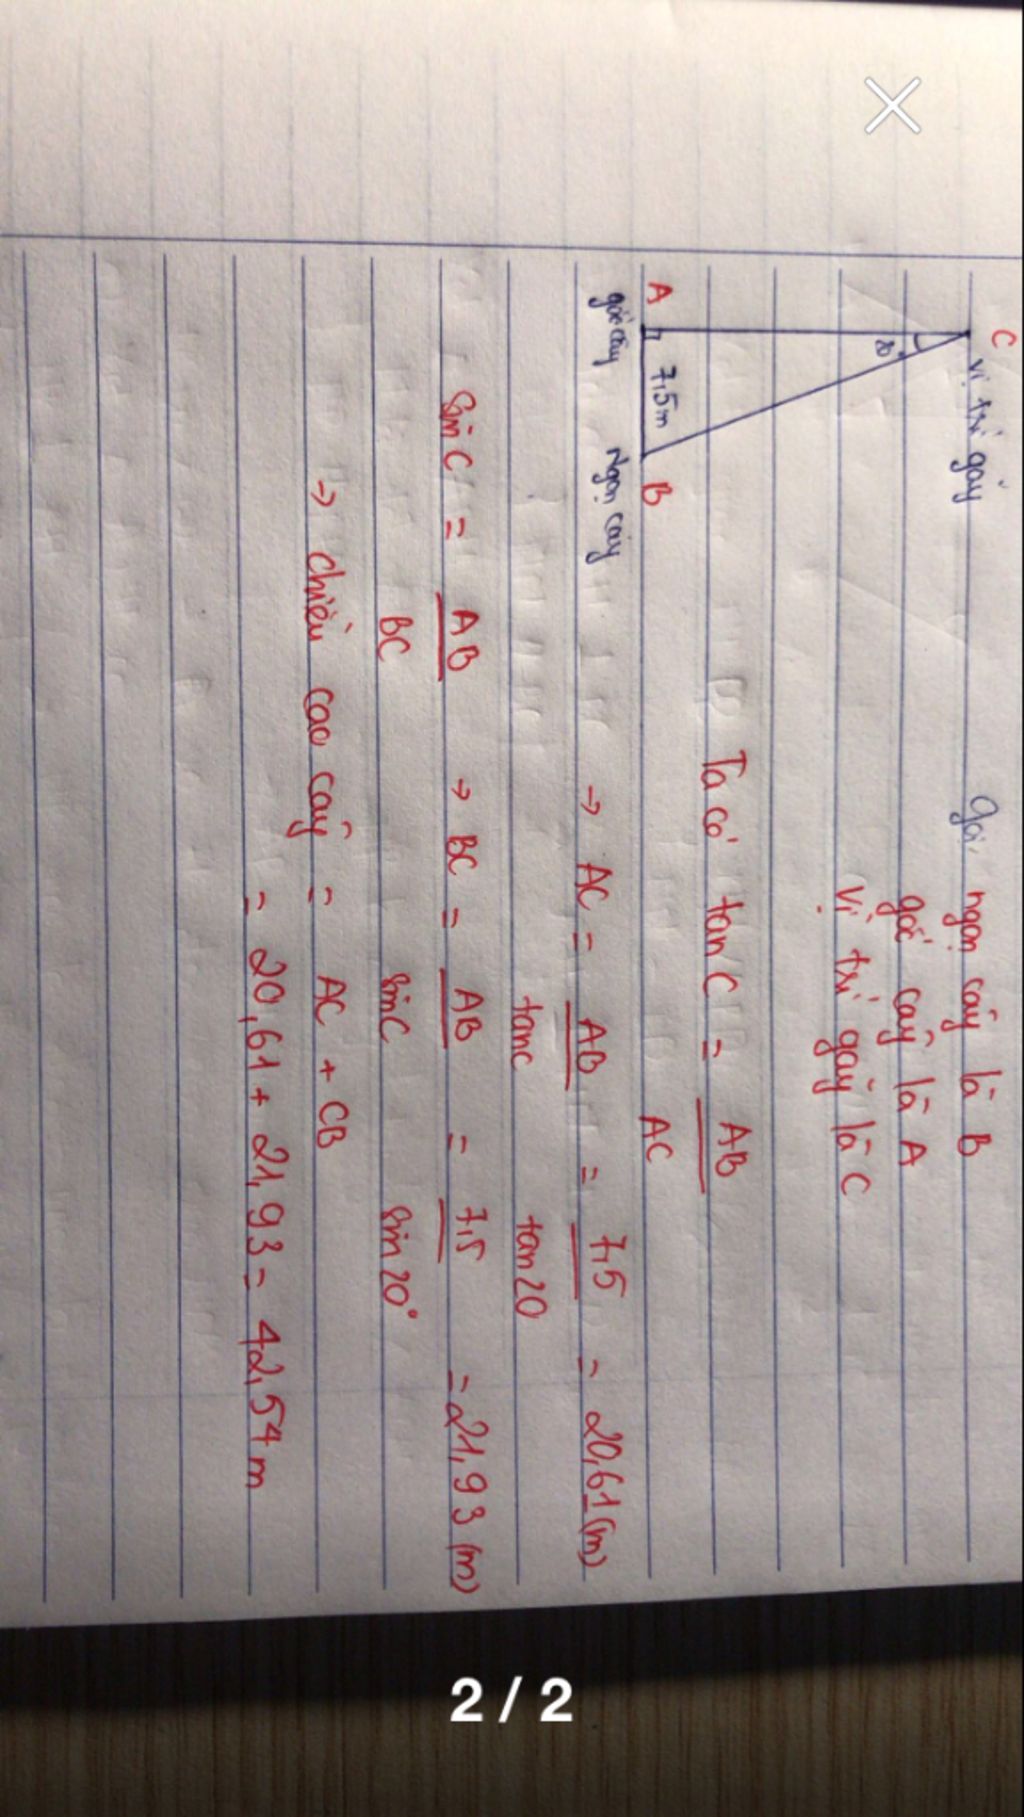 C
vị trí gãy
20°
A
7,5m
B
gốc cây
Ngọn cây
Gọi ngọn cây là B
gốc cây là A
vị trí gãy là C
Ta có tan C = AB
AC
→ AC = AB = 7,5 = 20,61 (m)
tanC tan20
Sin C = AB → BC = AB = 7,5 = 21,93 (m)
BC SinC Sin20°
→ chiều cao cây = AC + CB
= 20,61 + 21,93 = 42,54 m
2 / 2